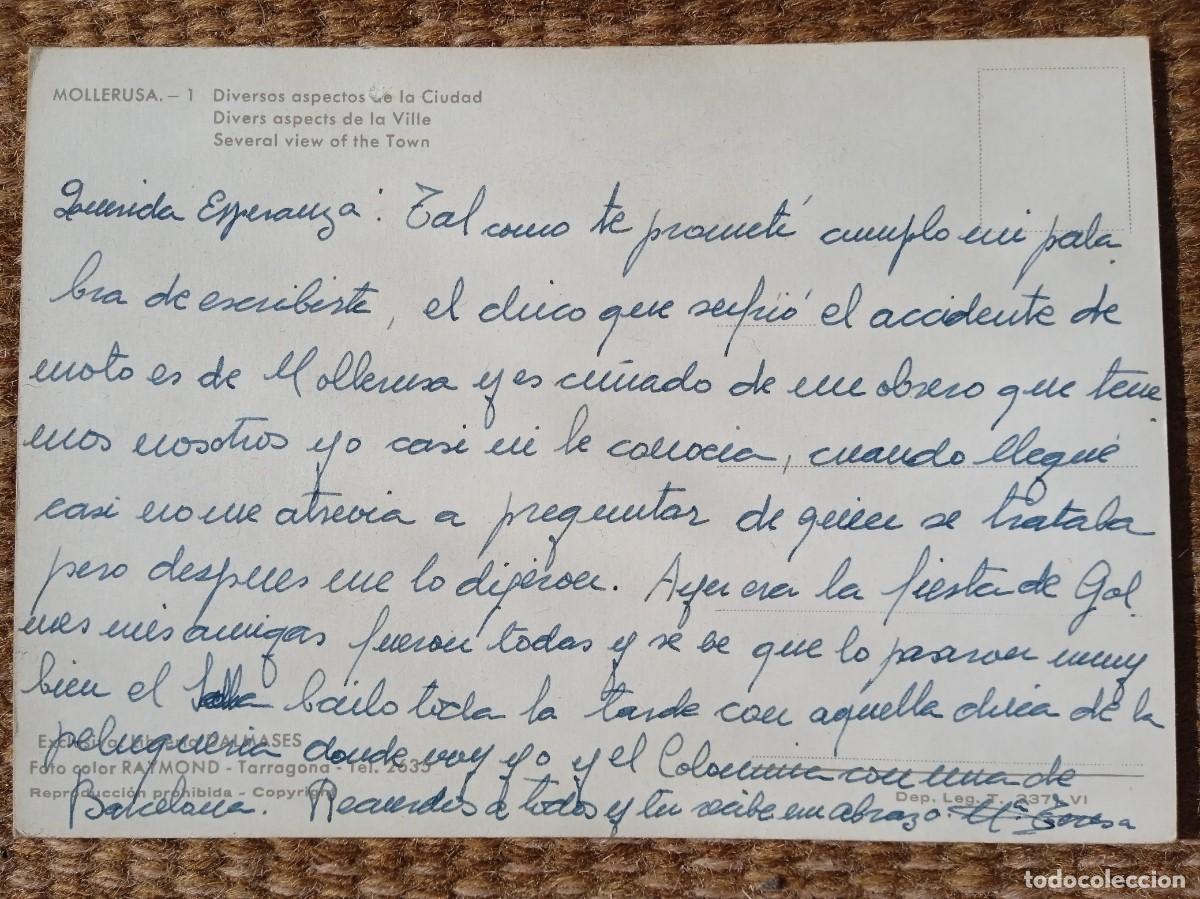 MOLLERUSA. – 1 Diversos aspectos de la Ciudad
Divers aspects de la Ville
Several view of the Town
Querida Esperanza: Tal como te prometí cumplo mi pala
bra de escribirte, el chico que sufrió el accidente de
moto es de Mollerusa y es cuñado de un obrero que tene
mos nosotros yo casi ni le conocia, cuando llegué
casi no me atrevia a preguntar de quien se trataba
pero despues me lo dijeron. Ayer era la fiesta de Gol
mes mis amigas fueron todas y se ve que lo pasaron muy
bien el bailo toda la tarde con aquella chica de la
peluqueria donde voy yo y el Colomina con una de
Barcelona. Recuerdos a todos y tu recibe un abrazo. Mª Teresa
Exclusiva Librería DALMASES
Foto color RAYMOND - Tarragona - Tel. 2635
Reproducción prohibida - Copyright
Dep. Leg. T. 237 - VI
todocoleccion